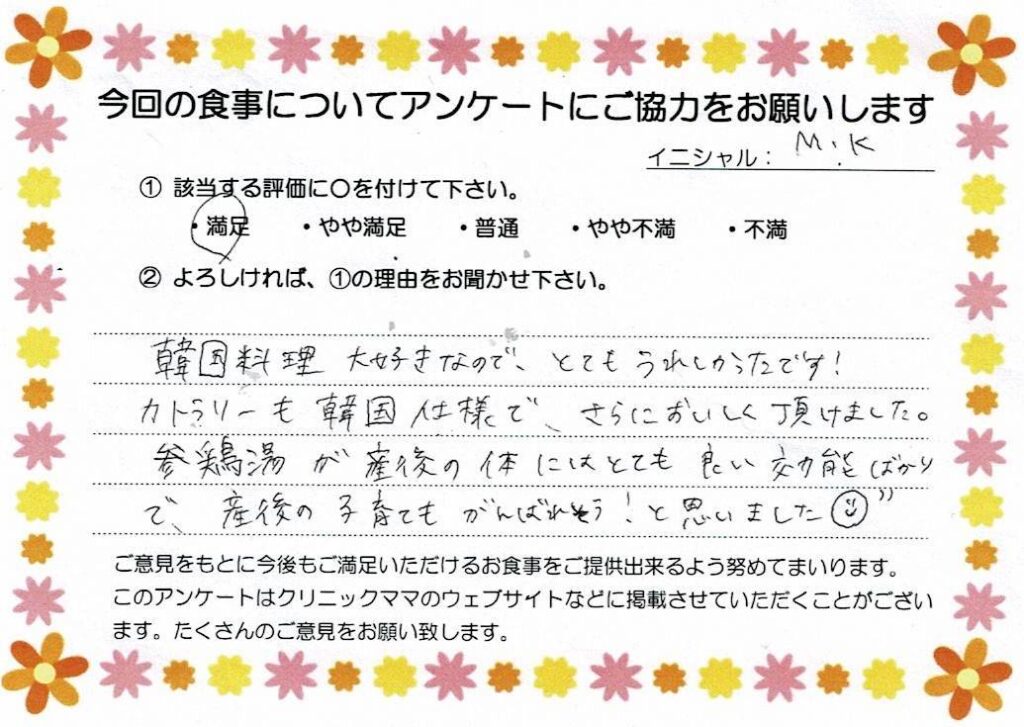 今回の食事についてアンケートにご協力をお願いします
イニシャル： M.K
① 該当する評価に〇を付けて下さい。
・満足 ・やや満足 ・普通 ・やや不満 ・不満
② よろしければ、①の理由をお聞かせ下さい。
韓国料理 大好きなので、とてもうれしかったです！
カトラリーも韓国仕様で、さらにおいしく頂けました。
参鶏湯が産後の体にはとても良い効能ばかり
で、産後の子育てもがんばれそう！と思いました
ご意見をもとに今後もご満足いただけるお食事をご提供出来るよう努めてまいります。
このアンケートはクリニックママのウェブサイトなどに掲載させていただくことがござい
ます。たくさんのご意見をお願い致します。